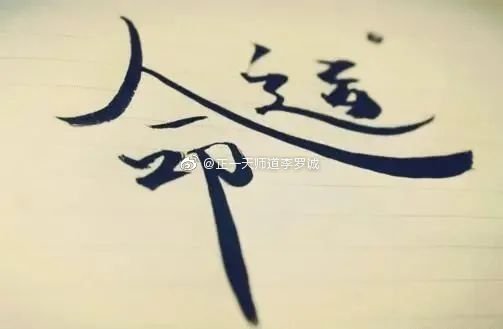 命运
@正一天师道李罗诚